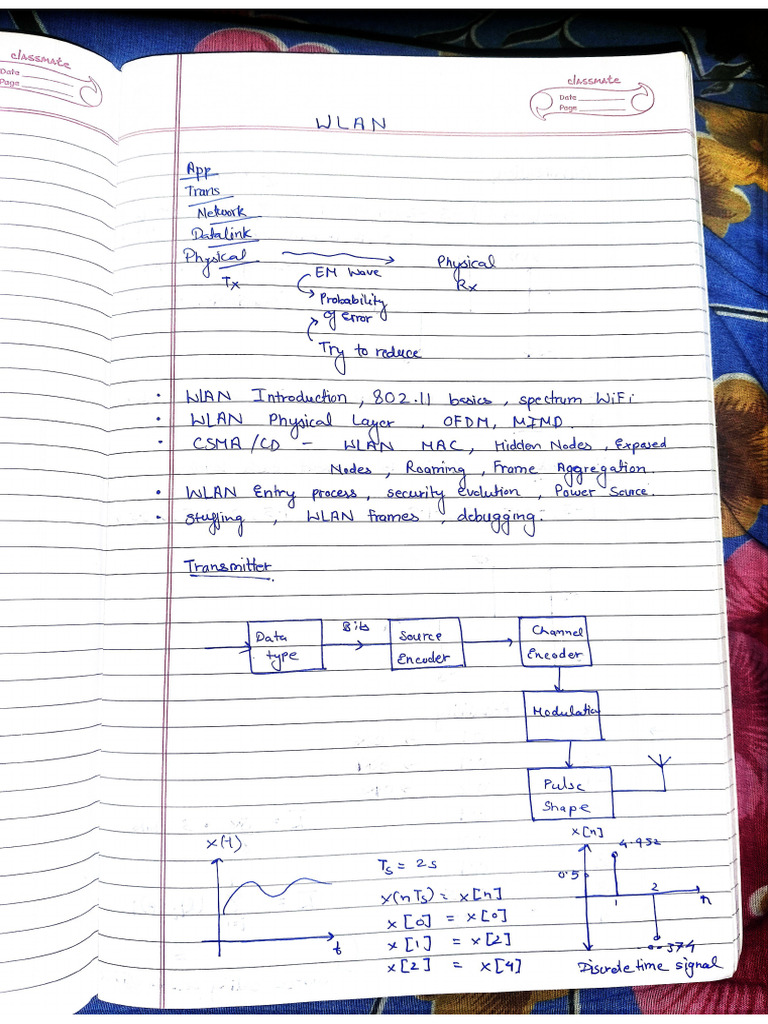 classmate
Date
Page
classmate
Date
Page
WLAN
App
Trans
Network
Datalink
Physical
Physical
Tx
EM Wave
Rx
Probability
of error
Try to reduce
• WLAN Introduction, 802.11 basics, spectrum WiFi
• WLAN Physical Layer, OFDM, MIMD.
• CSMA/CD – WLAN MAC, Hidden Nodes, Exposed
Nodes, Roaming, Frame Aggregation
• WLAN Entry process, security evolution, Power Source.
• Stuffing, WLAN frames, debugging.
Transmitter
Data type
Bits
Source Encoder
Channel Encoder
Modulation
Pulse Shape
x(t)
t
Ts = 2s
x(nTs) = x[n]
x[0] = x[0]
x[1] = x[2]
x[2] = x[4]
x[n]
4.952
0.5
1
2
n
Discrete time signal